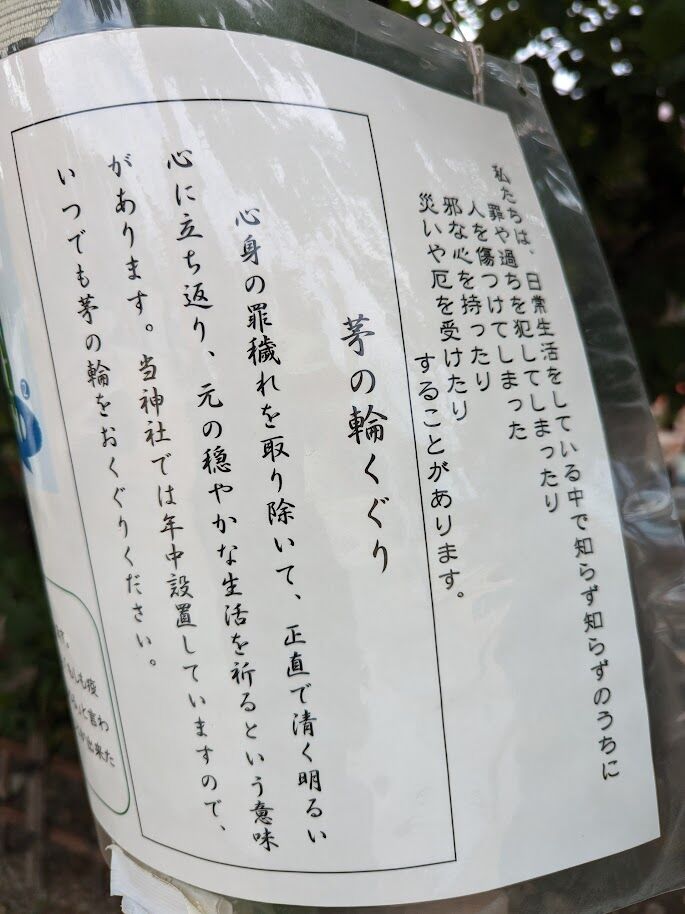 私たちは、日常生活をしている中で知らず知らずのうちに
罪や過ちを犯してしまったり
人を傷つけてしまった
邪な心を持ったり
災いや厄を受けたり
することがあります。
茅の輪くぐり
心身の罪穢れを取り除いて、正直で清く明るい
心に立ち返り、元の穏やかな生活を祈るという意味
があります。当神社では年中設置していますので、
いつでも茅の輪をおくぐりください。
も疫
と言わ
出来た